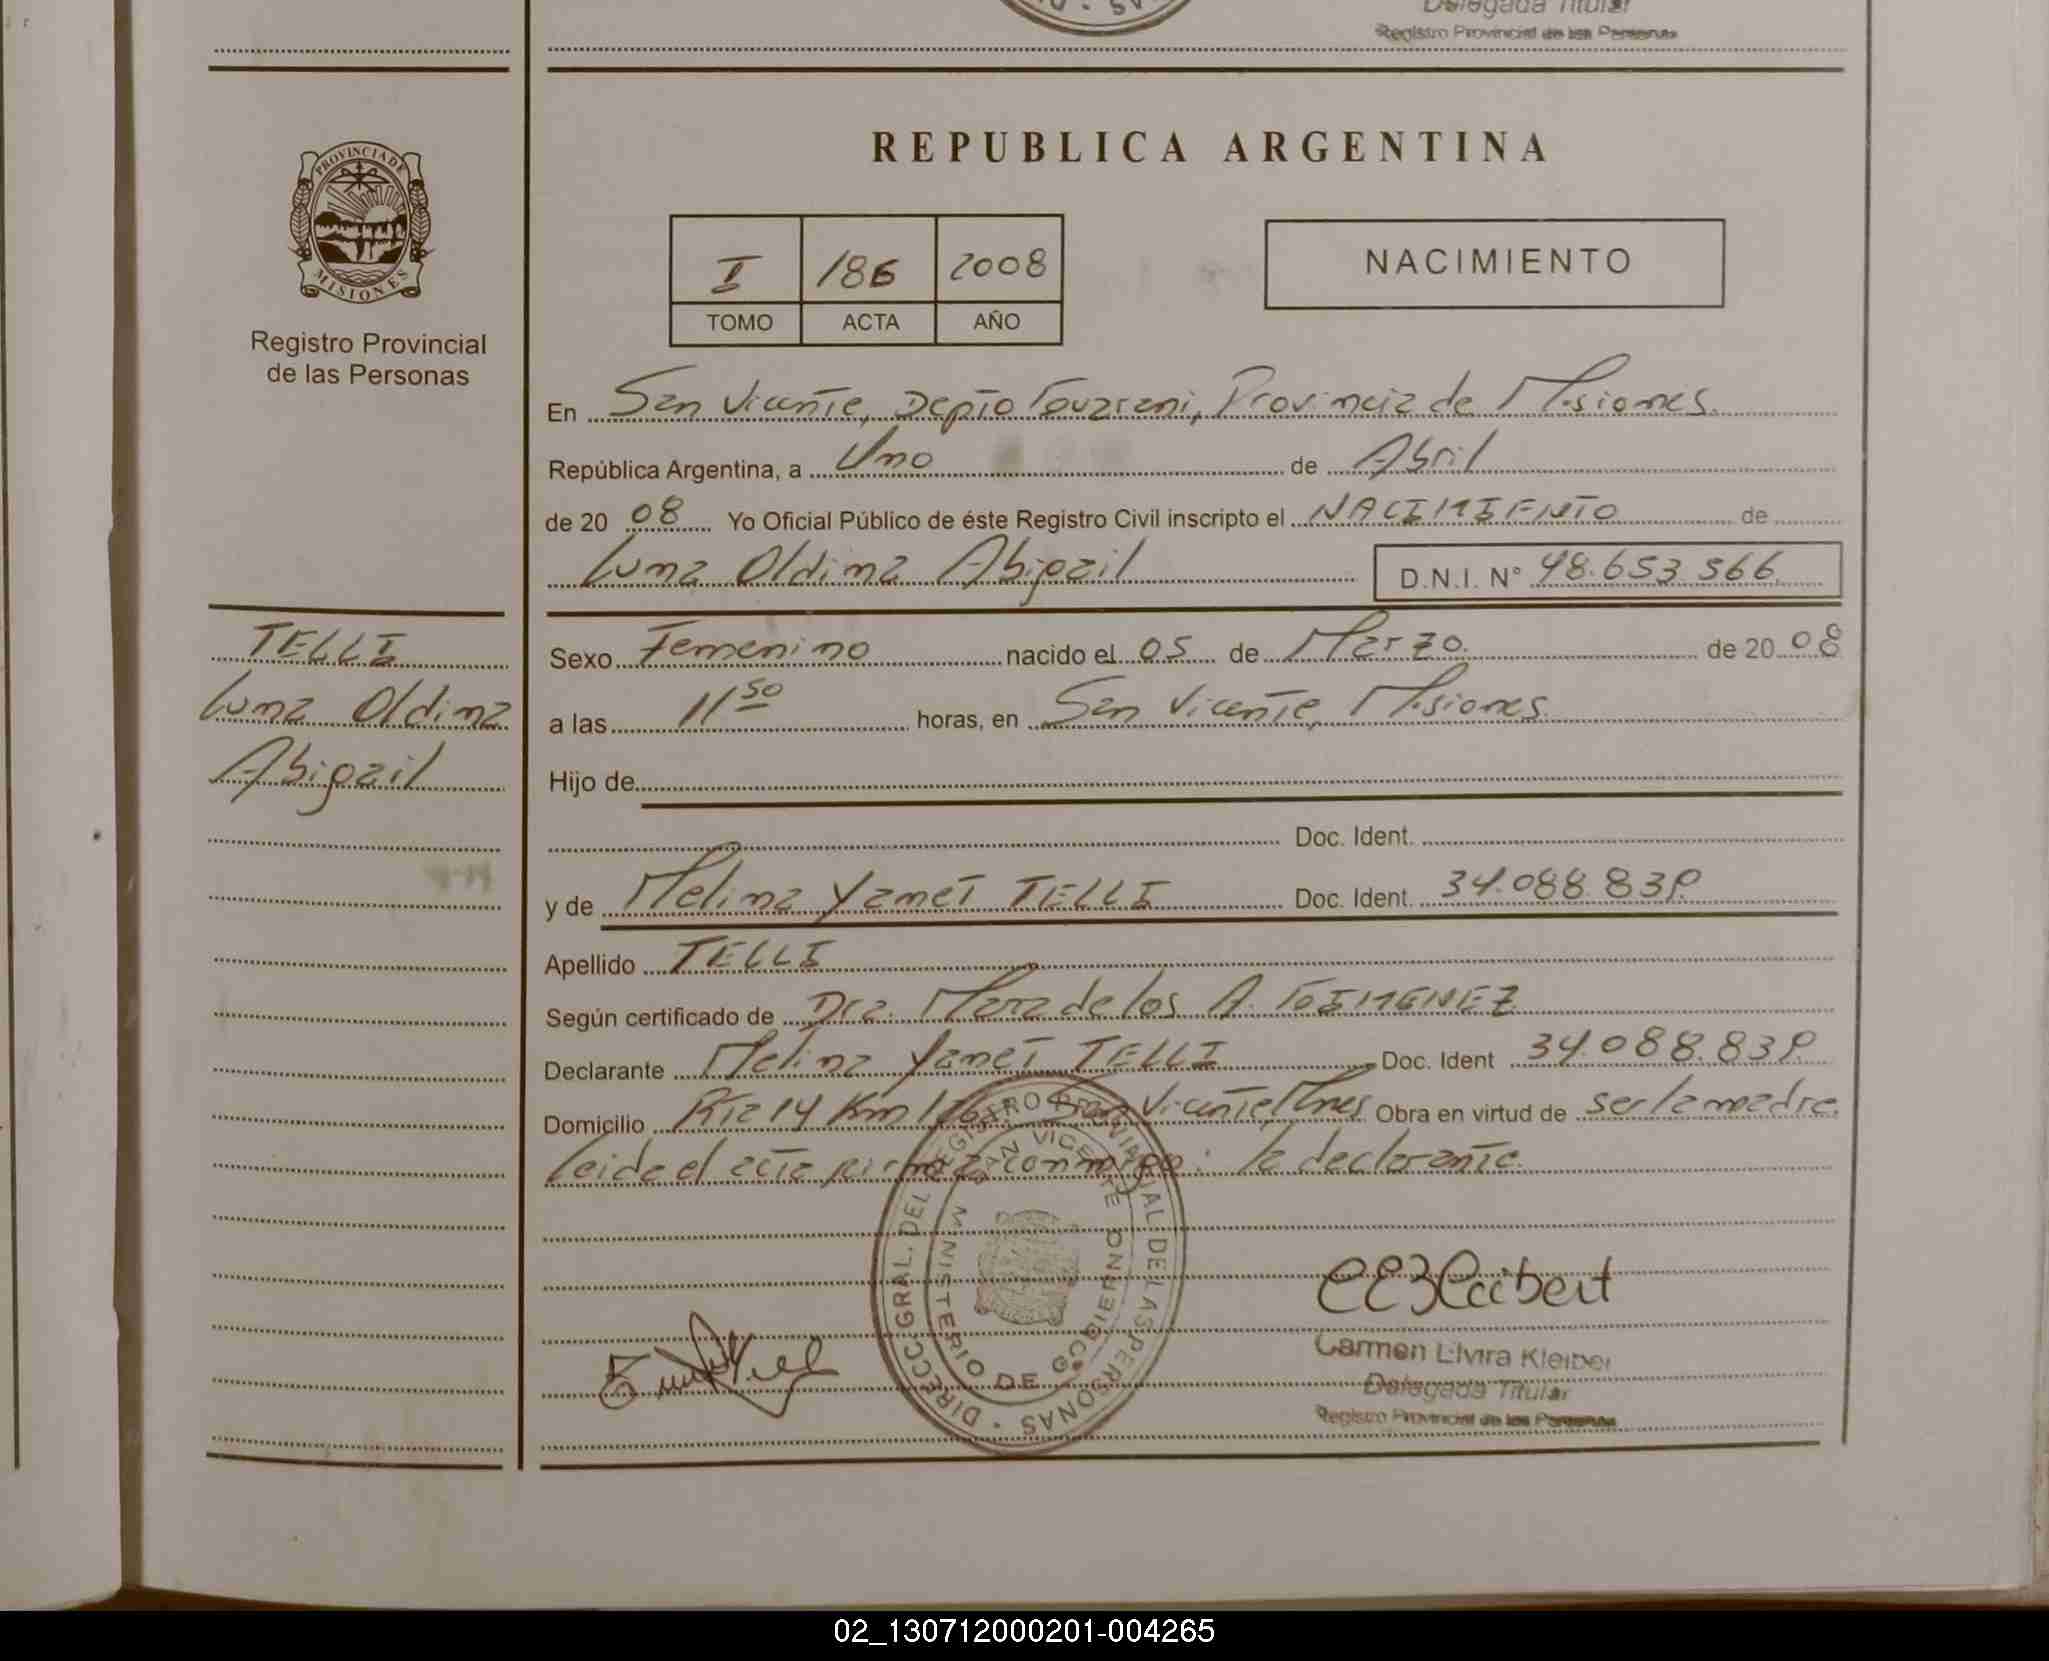 Delegada Titular
Registro Provincial de las Personas
PROVINCIA DE
MISIONES
Registro Provincial
de las Personas
REPUBLICA ARGENTINA
I 186 2008
TOMO ACTA AÑO
NACIMIENTO
En San Vicente, Depto Guarani, Provincia de Misiones
República Argentina, a Uno de Abril
de 20 08 Yo Oficial Público de éste Registro Civil inscripto el NACIMIENTO de
Luna Oldina Abigail D.N.I. N° 48.653 566
TELLI
Luna Oldina
Abigail
Sexo Femenino nacido el 05 de Marzo de 20 08
a las 11 50 horas, en San Vicente, Misiones
Hijo de
Doc. Ident.
y de Melina Yanet TELLI Doc. Ident. 34.088.839
Apellido TELLI
Según certificado de Dra. Maria de los A. GIMENEZ
Declarante Melina Yanet TELLI Doc. Ident 34.088.839
Domicilio Rta 14 Km San Vicente Mnes Obra en virtud de ser la madre
Leida el acta firma conmigo: la declarante.
DIRECC GRAL. DEL REGISTRO PROVINCIAL DE LAS PERSONAS
SAN VICENTE
MINISTERIO DE GOBIERNO
Carmen Elvira Kleiber
Delegada Titular
Registro Provincial de las Personas
02_130712000201-004265